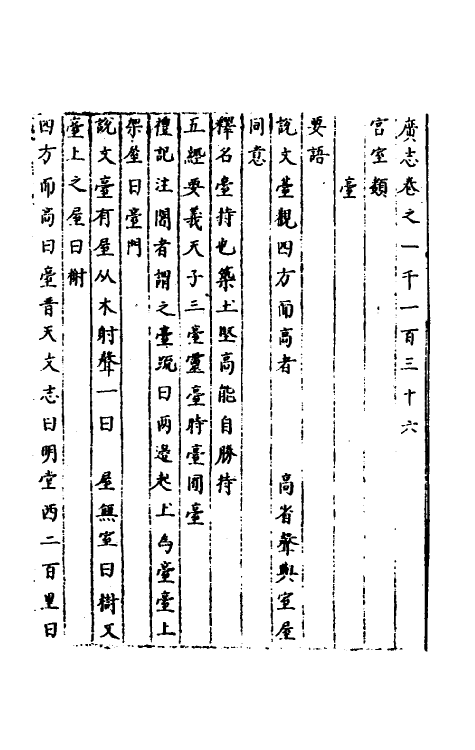 廣志卷之一千一百三十六
宮室類
臺
要語
說文臺觀四方而高者 高省聲與室屋
同意
釋名臺持也築土堅高能自勝持
五經要義天子三臺靈臺時臺囿臺
禮記注闍者謂之臺疏曰兩邊起土為臺臺上
架屋曰臺門
說文臺有屋从木射聲一曰 屋無室曰榭又
臺上之屋曰榭
四方而高曰臺晋天文志曰明堂西二百里曰